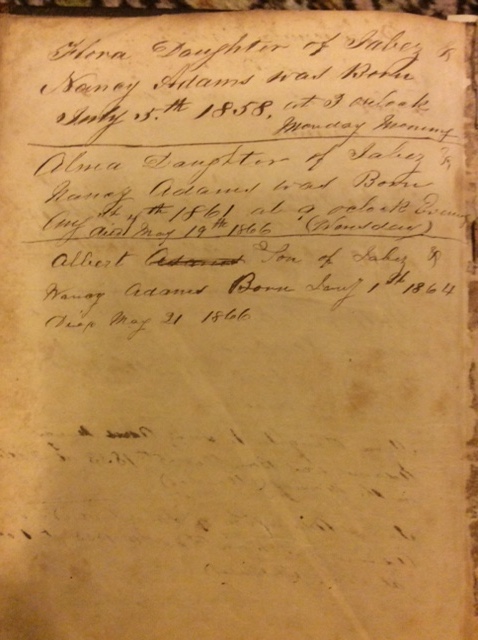 Flora Daughter of Jabez &
Nancy Adams was Born
July 5.th 1858, at 3 oclock
Monday Morning
Alma Daughter of Jabez &
Nancy Adams was Born
Aug 1861 at 9 oclock Evening
died May 19th 1866
Albert Adams Son of Jabez &
Nancy Adams Born Jany 1st 1864
Died May 21 1866